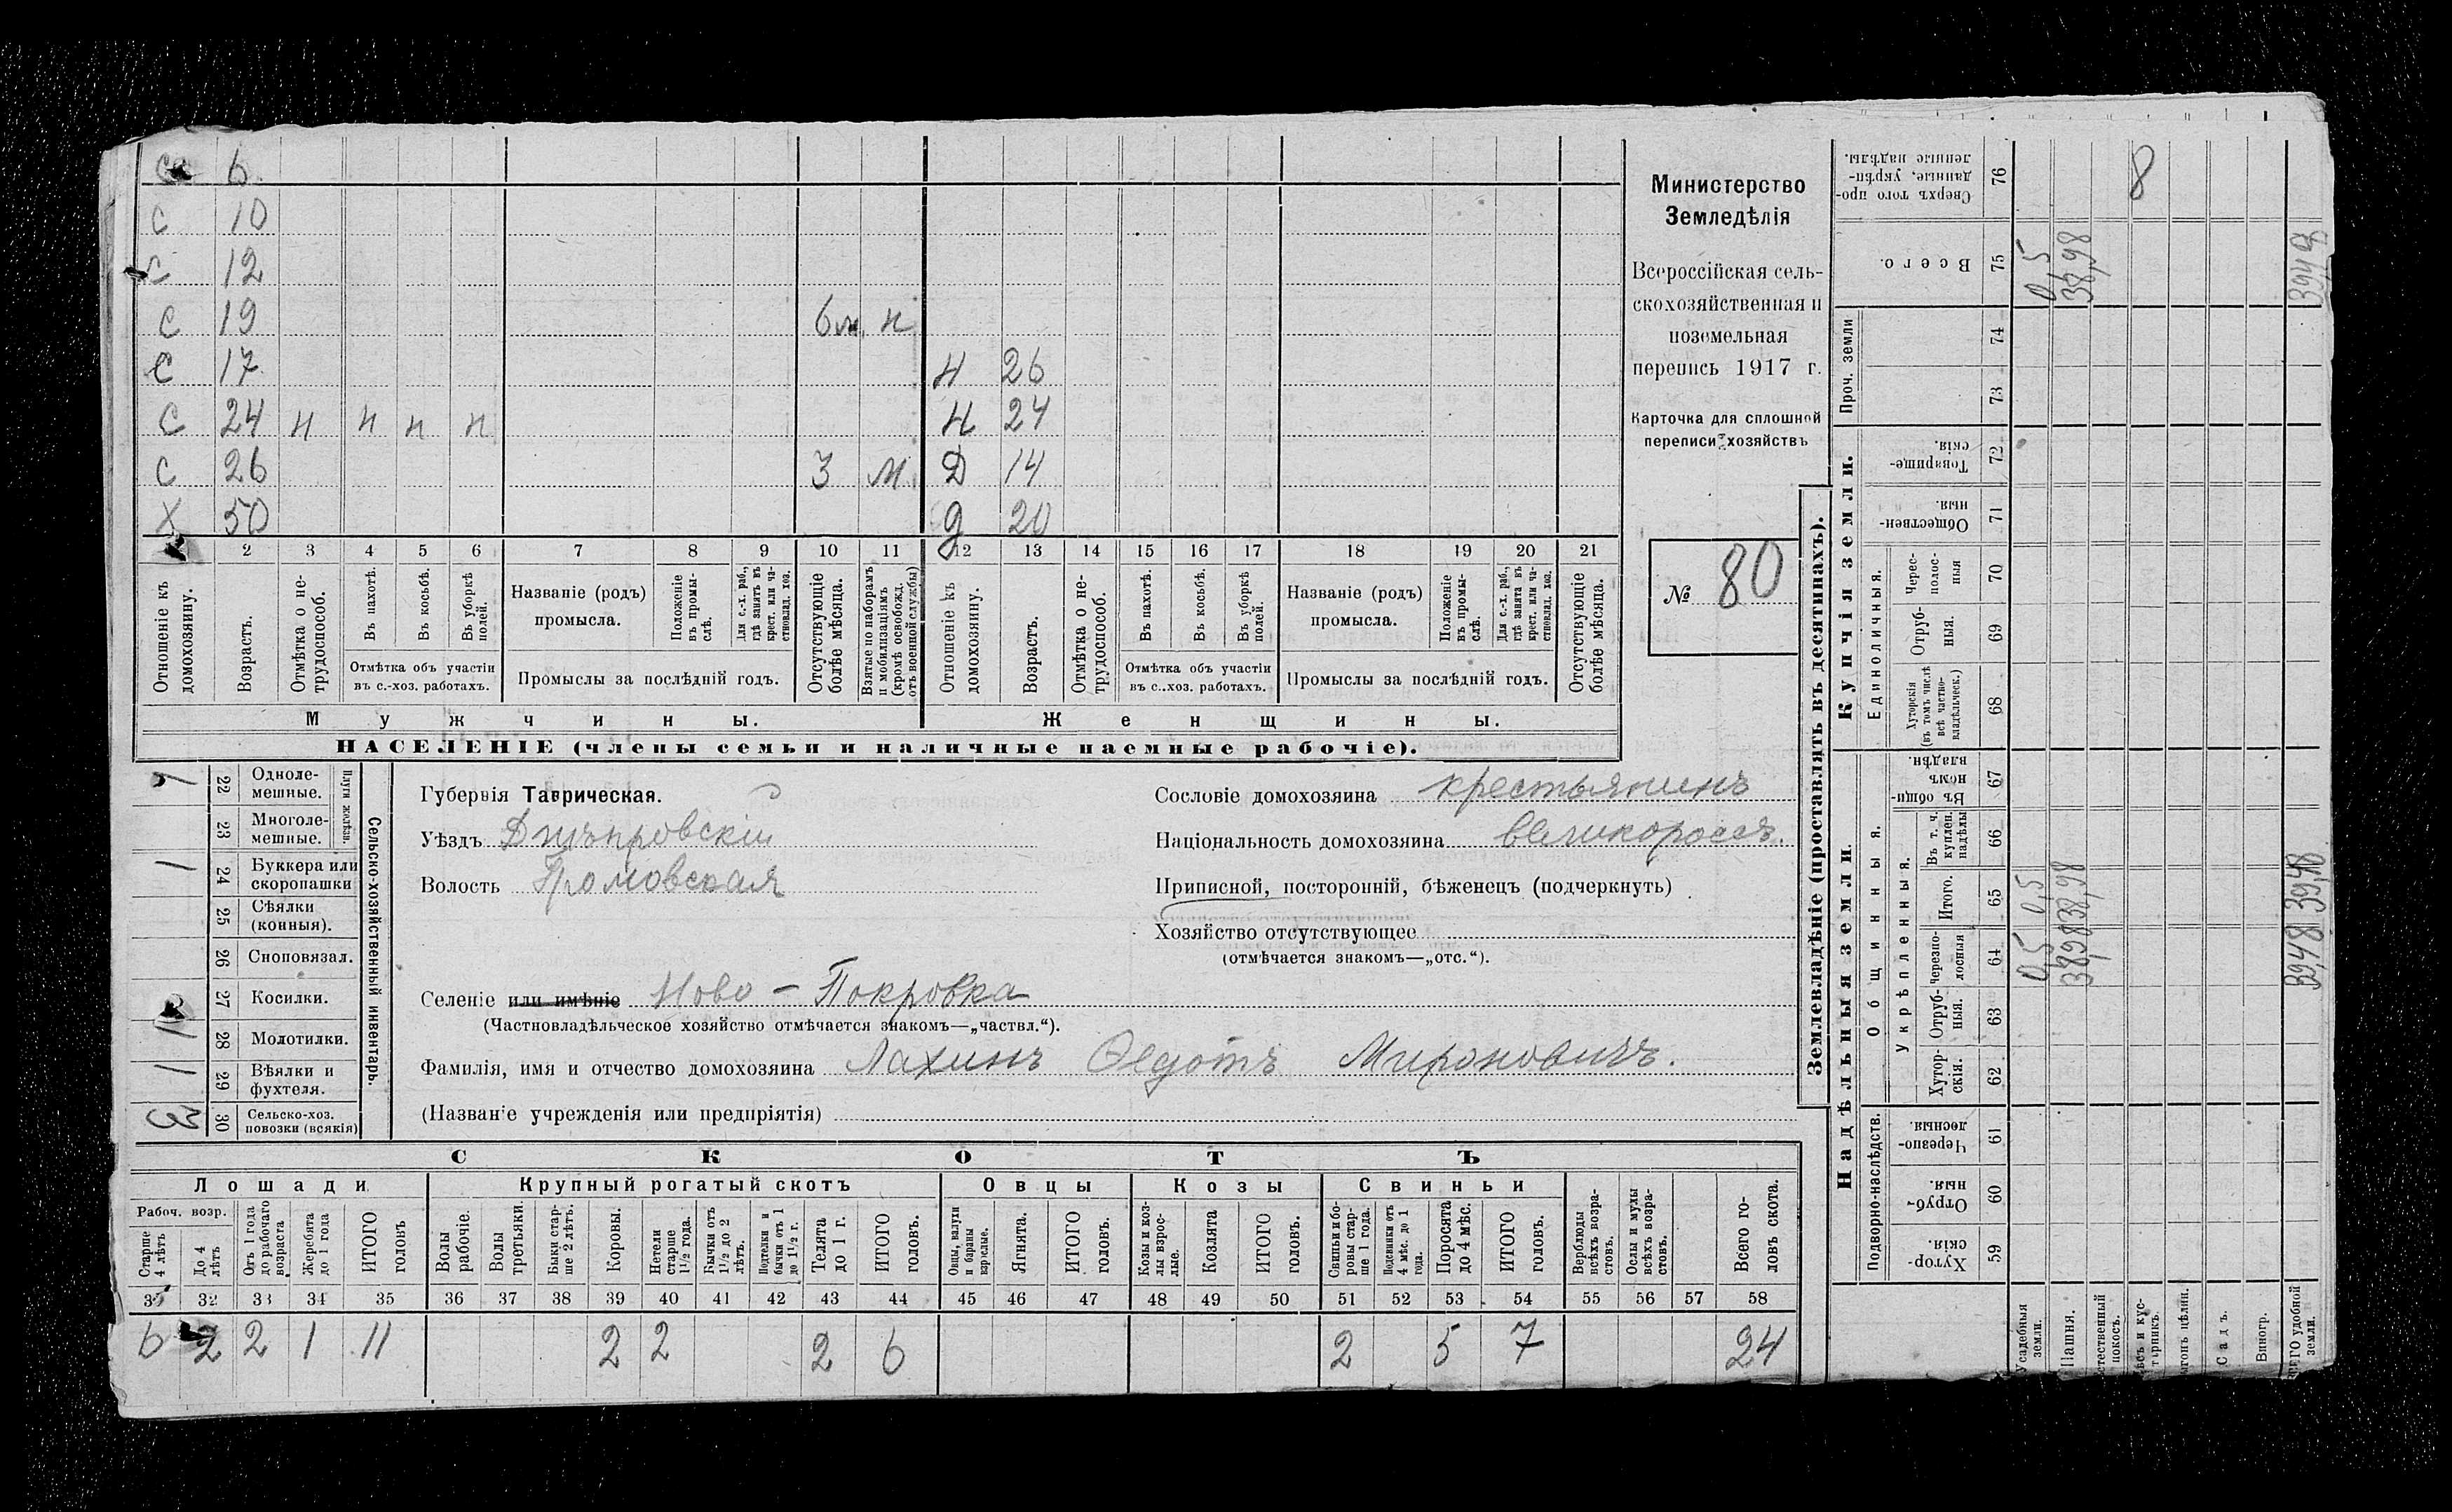 6
С 10
С 12
С 19 6 м. н
С 17 Н 26
С 24 н н н н Н 24
С 26 3 м Д 14
Х 50 Д 20
2 3 4 5 6 7 8 9 10 11 12 13 14 15 16 17 18 19 20 21
Отношеніе къ домохозяину.
Возрастъ.
Отмѣтка о не-
трудоспособ.
Въ пахотѣ.
Въ косьбѣ.
Въ уборкѣ полей.
Отмѣтка объ участіи
въ с.-хоз. работахъ.
Названіе (родъ)
промысла.
Положеніе
въ промы-
слѣ.
Для с.-х. раб.,
гдѣ занятъ въ
крест. или ча-
стновлад. хоз.
Промыслы за послѣдній годъ.
Отсутствующіе
болѣе мѣсяца.
Взятые по наборамъ
и мобилизаціямъ
(кромѣ освобожд.
отъ военной службы)
Отношеніе къ
домохозяину.
Возрастъ.
Отмѣтка о не-
трудоспособ.
Въ пахотѣ.
Въ косьбѣ.
Въ уборкѣ
полей.
Отмѣтка объ участіи
въ с.-хоз. работахъ.
Названіе (родъ)
промысла.
Положеніе
въ промы-
слѣ.
Для с.-х. раб.,
гдѣ занята въ
крест. или ча-
стновлад. хоз.
Промыслы за послѣдній годъ.
Отсутствующіе
болѣе мѣсяца.
Мужчины. Женщины.
НАСЕЛЕНІЕ (члены семьи и наличные наемные рабочіе).
Министерство
Земледѣлія
Всероссійская сель-
скохозяйственная и
поземельная
перепись 1917 г.
Карточка для сплошной
переписи хозяйствъ
№ 80
22 Одноле-
мешные.
23 Многоле-
мешные.
Плуги желѣзн.
1 24 Буккера или
скоропашки
25 Сѣялки
(конныя).
26 Сноповязал.
27 Косилки.
1 28 Молотилки.
1 29 Вѣялки и
фухтеля.
3 30 Сельско-хоз.
повозки (всякія)
Сельско-хозяйственный инвентарь.
Губернія Таврическая.
Уѣздъ Днѣпровскій
Волость Громовская
Селеніе или имѣніе Ново - Покровка
(Частновладѣльческое хозяйство отмѣчается знакомъ—„частвл.“).
Фамилія, имя и отчество домохозяина Лахинъ Федотъ Мироновичъ.
(Названіе учрежденія или предпріятія)
Сословіе домохозяина крестьянинъ
Національность домохозяина великороссъ.
Приписной, посторонній, бѣженецъ (подчеркнуть)
Хозяйство отсутствующее
(отмѣчается знакомъ—„отс.“).
СКОТЪ
Лошади Крупный рогатый скотъ Овцы Козы Свиньи
Рабоч. возр.
Старше
4 лѣтъ
До 4
лѣтъ
Отъ 1 года
до рабочаго
возраста
Жеребята
до 1 года
ИТОГО
головъ
Волы
рабочіе.
Волы
третьяки.
Быки стар-
ше 2 лѣтъ.
Коровы.
Нетели
старше
1½ года.
Бычки отъ
1½ до 2
лѣтъ.
Подтелки и
бычки отъ 1
до 1½ г.
Телята
до 1 г.
ИТОГО
головъ.
Овцы, валухи
и бараны
взрослые.
Ягнята.
ИТОГО
головъ.
Козы и коз-
лы взрос-
лые.
Козлята
ИТОГО
головъ.
Свиньи и бо-
ровы стар-
ше 1 года.
Подсвинки отъ
4 мѣс. до 1
года.
Поросята
до 4 мѣс.
ИТОГО
головъ.
Верблюды
всѣхъ возра-
стовъ.
Ослы и мулы
всѣхъ возра-
стовъ.
Всего го-
ловъ скота.
32 33 34 35 36 37 38 39 40 41 42 43 44 45 46 47 48 49 50 51 52 53 54 55 56 57 58
6 2 2 1 11 2 2 2 6 2 5 7 24
Землевладѣніе (проставлять въ десятинахъ).
Надѣльныя земли. Купчія земли.
Подворно-наслѣдств. Общинныя.
Укрѣпленныя. Единоличныя.
Проч. земли
Сверхъ того про-
данные, укрѣп-
ленные надѣлы. 76 8
Всего. 75 0,5 38,98 39,48
74
73
Товарище-
скія. 72
Обществен-
ныя. 71
Черес-
полос-
ныя 70
Отруб-
ныя. 69
Хуторскія
(въ томъ числѣ
всѣ частно-
владѣльческ.) 68
Въ общи-
номъ
владѣн. 67
Въ т. ч.
куплен.
надѣлы 66
Итого. 65 0,5 38,98 39,48
Черезпо-
лосныя 64 0,5 38,98 39,48
Отруб-
ныя. 63
Хутор-
скія. 62
Черезпо-
лосныя. 61
Отруб-
ныя. 60
Хутор-
скія. 59
Усадебныя
земли.
Пашня.
Садъ.
Виногр.
удобной
земли.